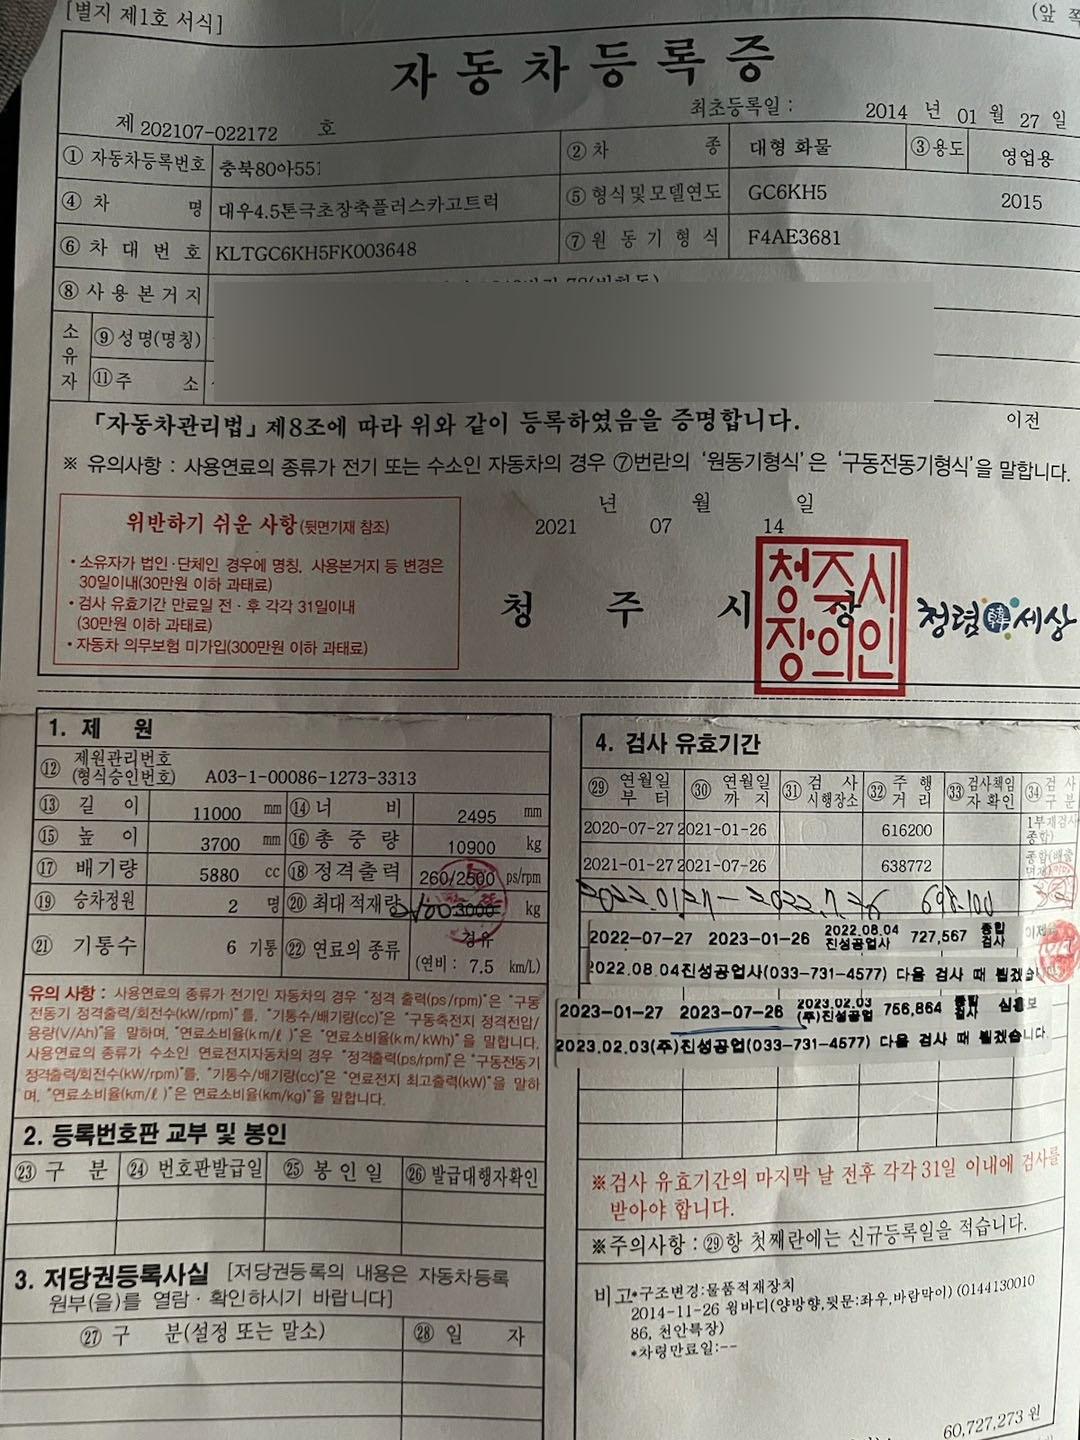 [별지 제1호 서식]
(앞 쪽
자동차등록증
최초등록일 : 2014 년 01 월 27 일
제 202107-022172 호
① 자동차등록번호 충북80아551 ② 차 종 대형 화물 ③용도 영업용
④ 차 명 대우4.5톤극초장축플러스카고트럭 ⑤ 형식및모델연도 GC6KH5 2015
⑥ 차 대 번 호 KLTGC6KH5FK003648 ⑦ 원 동 기 형 식 F4AE3681
⑧ 사 용 본 거 지
소유자 ⑨ 성명(명칭)
⑪ 주 소
「자동차관리법」 제8조에 따라 위와 같이 등록하였음을 증명합니다.
이전
※ 유의사항 : 사용연료의 종류가 전기 또는 수소인 자동차의 경우 ⑦번란의 '원동기형식'은 '구동전동기형식'을 말합니다.
년 월 일
2021 07 14
위반하기 쉬운 사항(뒷면기재 참조)
• 소유자가 법인·단체인 경우에 명칭, 사용본거지 등 변경은
30일이내(30만원 이하 과태료)
• 검사 유효기간 만료일 전·후 각각 31일이내
(30만원 이하 과태료)
• 자동차 의무보험 미가입(300만원 이하 과태료)
청 주 시 장
청주시
장의인
청렴韓세상
1. 제 원
⑫ 제원관리번호
(형식승인번호) A03-1-00086-1273-3313
⑬ 길 이 11000 mm ⑭ 너 비 2495 mm
⑮ 높 이 3700 mm ⑯ 총 중 량 10900 kg
⑰ 배기량 5880 cc ⑱ 정격출력 260/2500 ps/rpm
⑲ 승차정원 2 명 ⑳ 최대적재량 3000 kg
㉑ 기통수 6 기통 ㉒ 연료의 종류 경유
(연비 : 7.5 km/L)
유의 사항 : 사용연료의 종류가 전기인 자동차의 경우 "정격 출력(ps/rpm)"은 "구동
전동기 정격출력/회전수(kW/rpm)"를, "기통수/배기량(cc)"은 "구동축전지 정격전압/
용량(V/Ah)"을 말하며, "연료소비율(km/ℓ)"은 "연료소비율(km/kWh)"을 말합니다.
사용연료의 종류가 수소인 연료전지자동차의 경우 "정격출력(ps/rpm)"은 "구동전동기
정격출력/회전수(kW/rpm)"를, "기통수/배기량(cc)"은 "연료전지 최고출력(kW)"을 말하
며, "연료소비율(km/ℓ)"은 연료소비율(km/kg)"을 말합니다.
2. 등록번호판 교부 및 봉인
㉓ 구 분 ㉔ 번호판발급일 ㉕ 봉 인 일 ㉖ 발급대행자확인
3. 저당권등록사실 [저당권등록의 내용은 자동차등록
원부(을)를 열람·확인하시기 바랍니다]
㉗ 구 분(설정 또는 말소) ㉘ 일 자
4. 검사 유효기간
㉙ 연월일부터 ㉚ 연월일까지 ㉛ 검사시행장소 ㉜ 주행거리 ㉝ 검사책임자확인 ㉞ 검사구분
2020-07-27 2021-01-26 616200 1부재검사
종합)
2021-01-27 2021-07-26 638772 종합(배출
2022.01.27 - 2022.7.26 698.100
2022-07-27 2023-01-26 2022.08.04 진성공업사 727,567 종합검사
2022.08.04진성공업사(033-731-4577) 다음 검사 때 뵙겠습
2023-01-27 2023-07-26 2023.02.03 (주)진성공업 756,864 종합검사
2023.02.03(주)진성공업(033-731-4577) 다음 검사 때 뵙겠습니다
※검사 유효기간의 마지막 날 전후 각각 31일 이내에 검사를
받아야 합니다.
※주의사항 : ㉙항 첫째란에는 신규등록일을 적습니다.
비고 *구조변경:물품적재장치
2014-11-26 윙바디(양방향,뒷문:좌우,바람막이) (0144130010
86, 천안특장)
*차령만료일:--
60,727,273 원